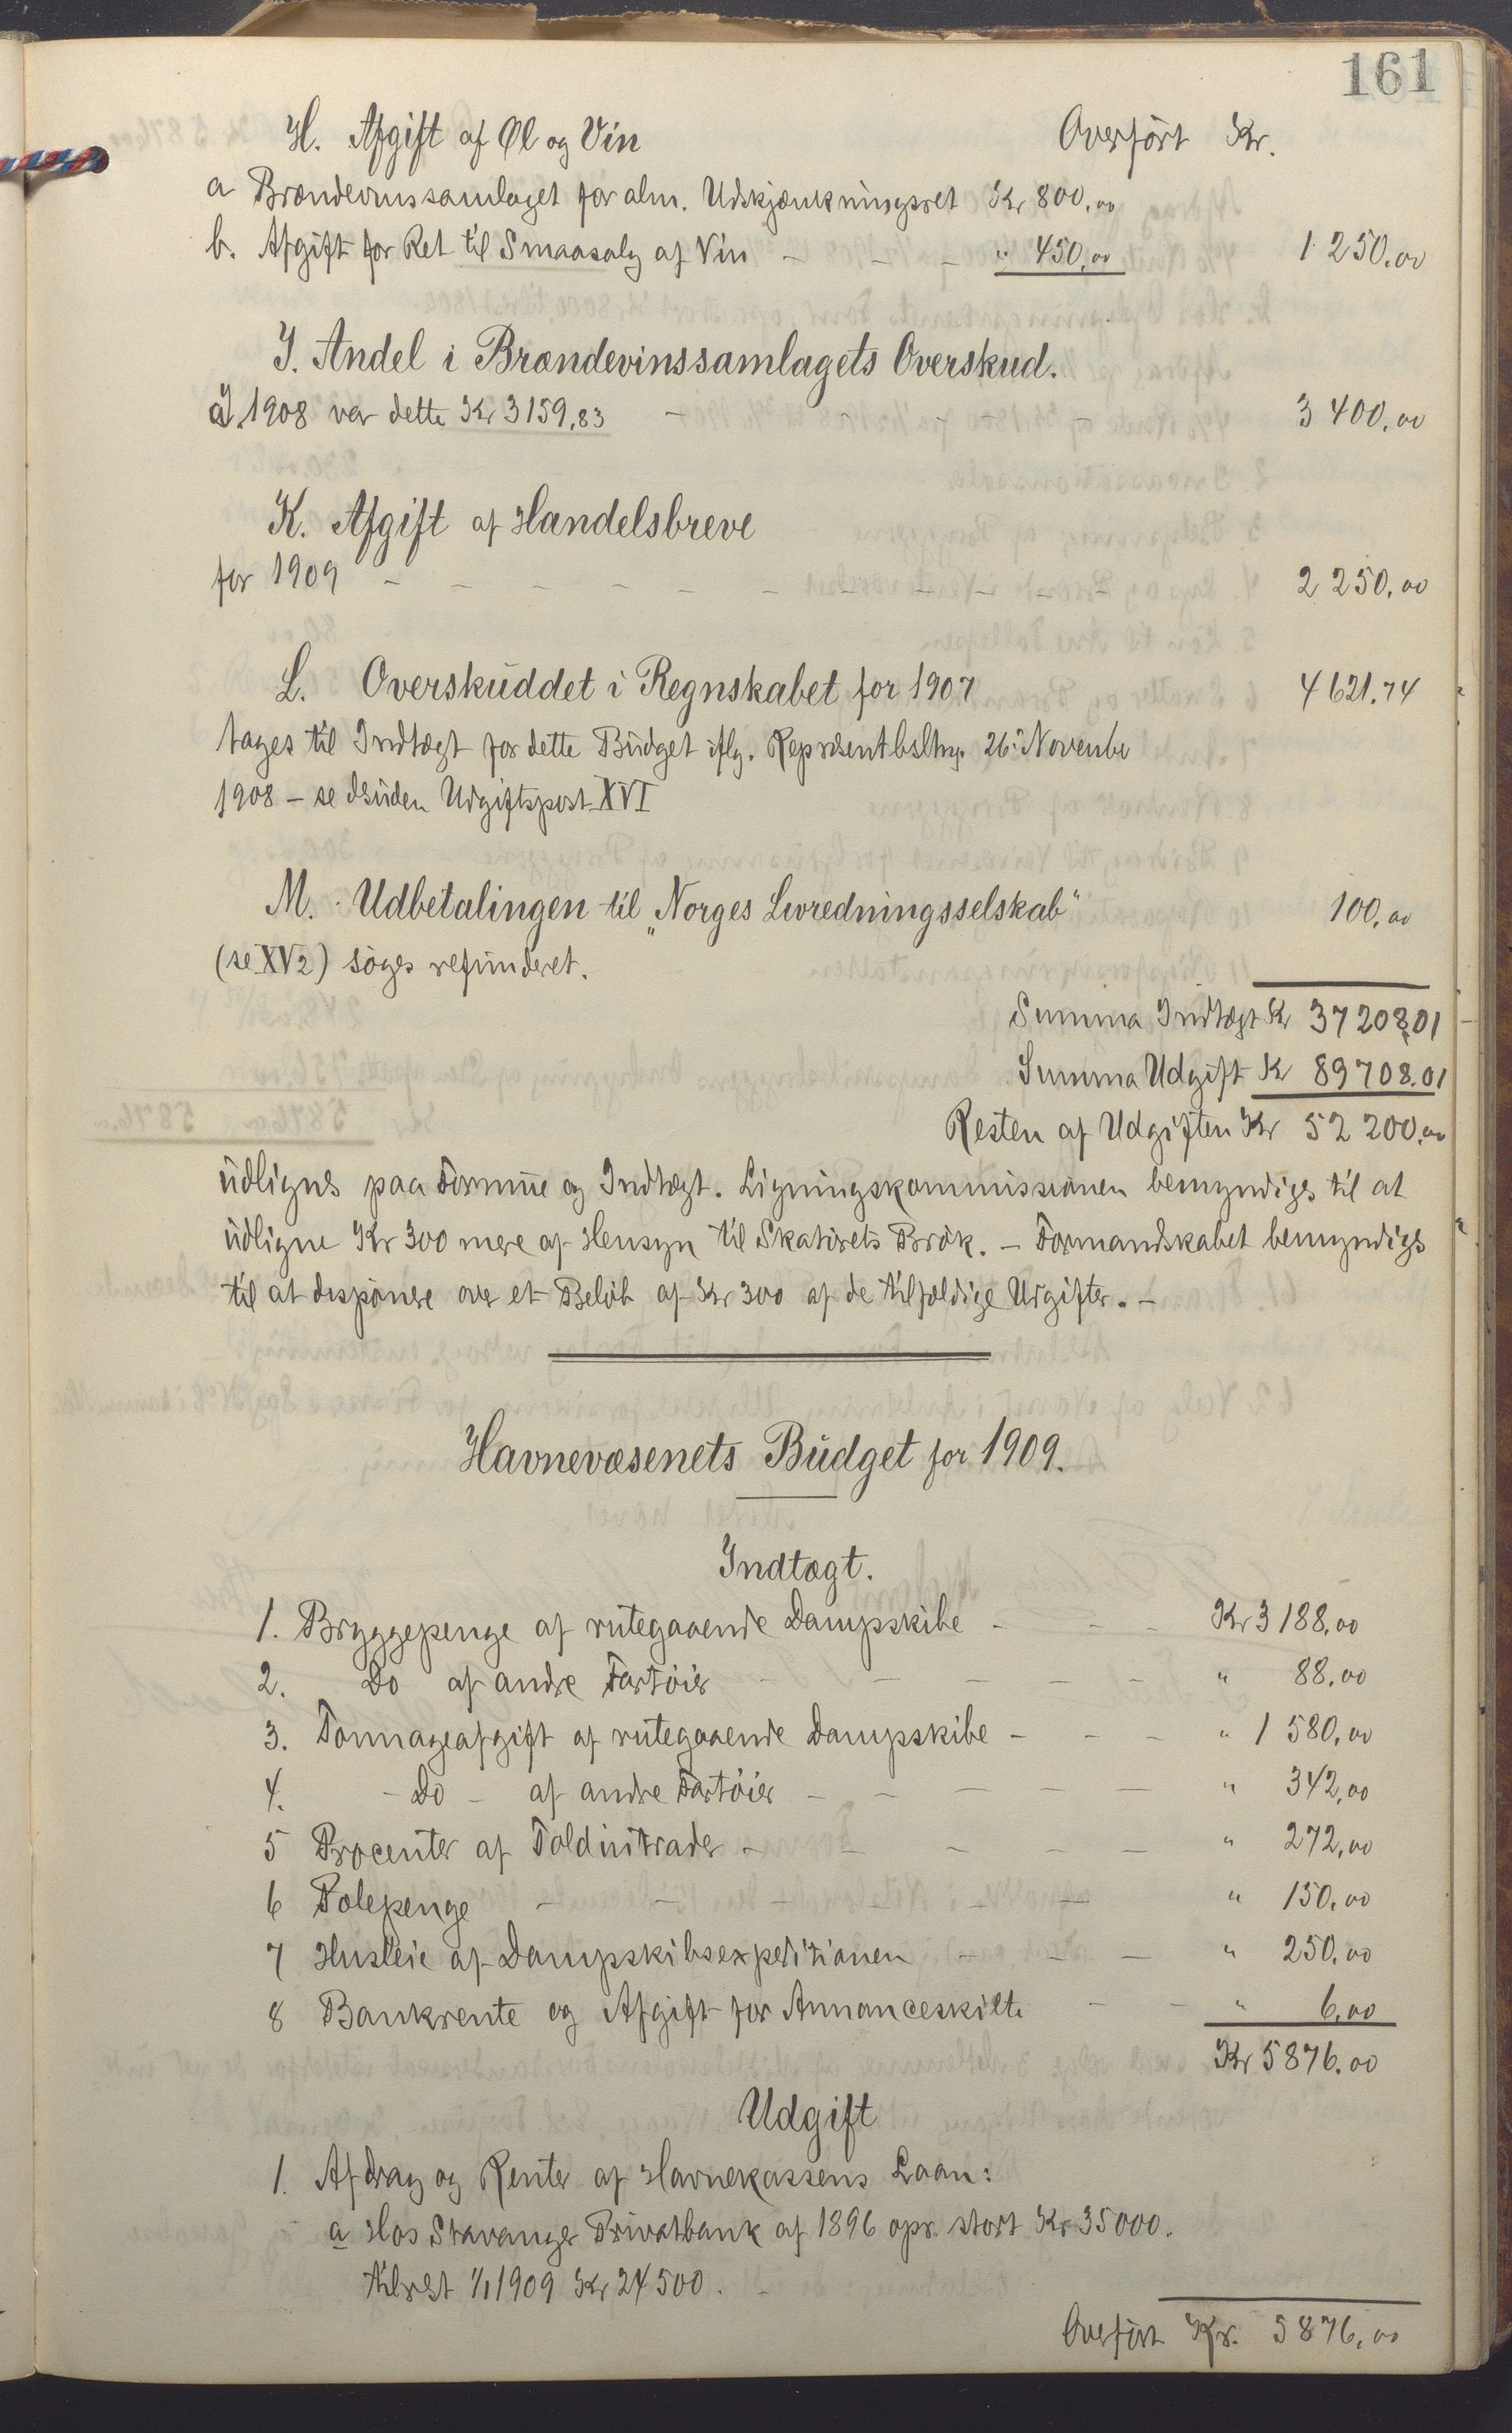 161
H. Afgift af Øl og Vin Overført Kr.
a Brændevinssamlaget for alm. Udskjænkningsret Kr 800,00
b. Afgift for Ret til Smaasalg af Vin - - - " 450,00 1 250.00
I. Andel i Brændevinssamlagets Overskud.
I 1908 var dette Kr 3159,83 - - - - 3 400,00
K. Afgift af Handelsbreve
for 1909 - - - - - - - - - - 2 250,00
L. Overskuddet i Regnskabet for 1907 4 621.74
tages til Indtægt for dette Budget iflg. 26. Novembr
1908 - se Udgiftspost XVI
M. Udbetalingen til „Norges Livredningsselskab" 100,00
(se XV2) søges refunderet.
Summa Indtægt Kr 37 208,01
Summa Udgift Kr 89 708.01
Resten af Udgiften Kr 52 200,00
udlignes paa Formue og Indtægt. Ligningskommissionen bemyndiges til at
udligne Kr 300 mere af Hensyn til Skatørets Brøk. - Formandskabet bemyndiges
til at disponere over et Beløb af Kr 300 af de tilfældige Udgifter. -
Havnevæsenets Budget for 1909.
Indtægt.
1. Bryggepenge af rutegaaende Dampskibe - - - Kr 3 188,00
2. Do af andre Fartøier - - - - - " 88,00
3. Tonnageafgift af rutegaaende Dampskibe - - - " 1 580,00
4. - Do - af andre Fartøier - - - - - " 342,00
5 Procenter af Toldintrader - - - - - " 272,00
6 Pælepenge - - - - - " 150,00
7 Husleie af Dampskibsexpeditionen - - - " 250,00
8 Bankrente og Afgift for Annonceskilte - - " 6,00
Kr 5876,00
Udgift
1. Afdrag og Renter af Havnekassens Laan:
a Hos Stavanger Privatbank af 1896 opr. stort Kr 35000.
tilrest 1/1 1909 Kr 24 500.
Overført Kr. 5876,00